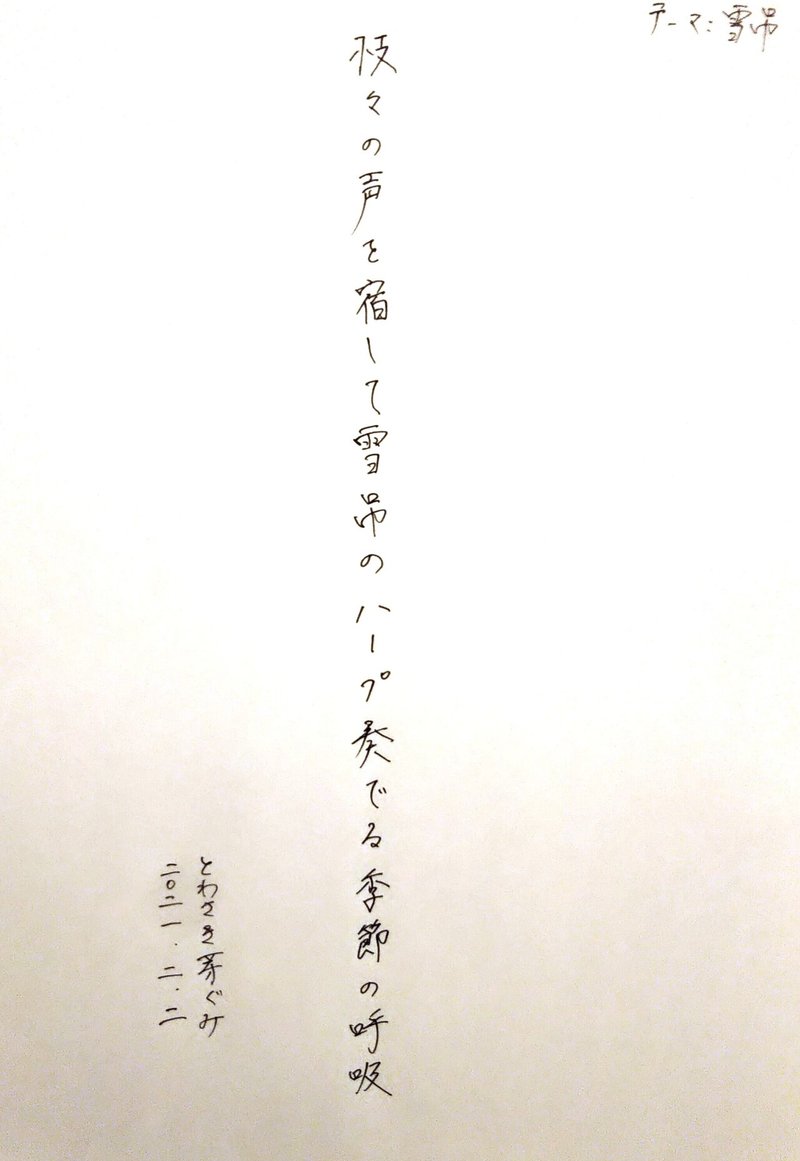 テーマ：雪吊
枝々の声を宿して雪吊のハープ奏でる季節の呼吸
とわさき芽ぐみ
二〇二一.二.二